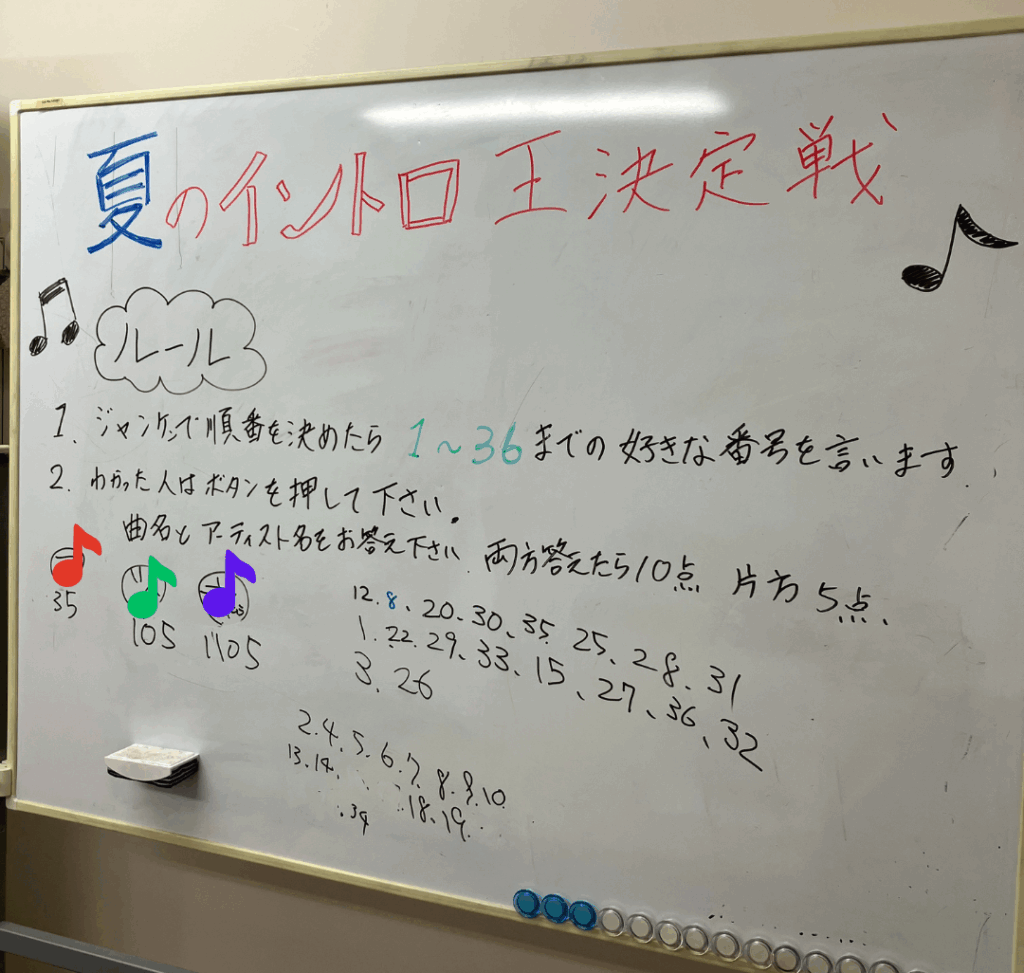 夏のイントロ王決定戦
ルール
1. ジャンケンで順番を決めたら 1〜36までの好きな番号を言います.
2. わかった人はボタンを押して下さい.
曲名とアーティスト名をお答え下さい. 両方答えたら10点 片方5点.
35
105
1105
12.8、20、30、35 25、28、31
1.22.29、33、15、27、36、32
3、26
2.4.5.6.7.8.9.10
13.14. 18.19.
.34